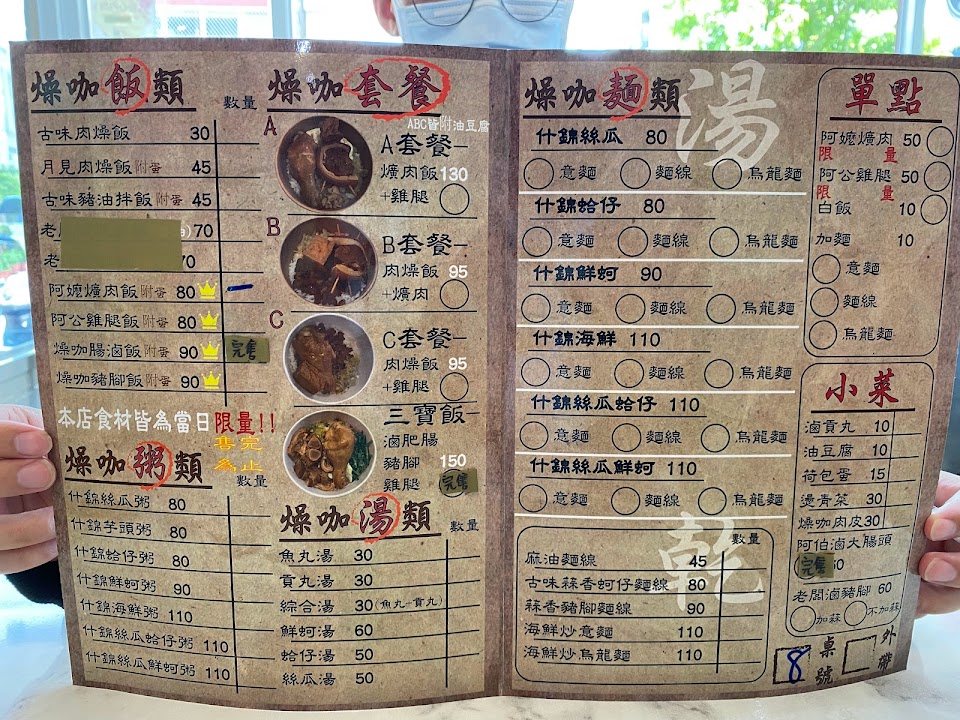 燥咖飯類
數量
古味肉燥飯 30
月見肉燥飯附蛋 45
古味豬油拌飯附蛋 45
老 70
老 70
阿嬤爌肉飯附蛋 80
阿公雞腿飯附蛋 80
燥咖腸滷飯附蛋 90 完售
燥咖豬腳飯附蛋 90
本店食材皆為當日限量!!
售完為止
燥咖粥類
數量
什錦絲瓜粥 80
什錦芋頭粥 80
什錦蛤仔粥 80
什錦鮮蚵粥 90
什錦海鮮粥 110
什錦絲瓜蛤仔粥 110
什錦絲瓜鮮蚵粥 110
燥咖套餐
ABC皆附油豆腐
A
A套餐-
爌肉飯130
+雞腿
B
B套餐-
肉燥飯 95
+爌肉
C
C套餐-
肉燥飯 95
+雞腿
三寶飯-
滷肥腸
豬腳 150
雞腿 完售
燥咖湯類
數量
魚丸湯 30
貢丸湯 30
綜合湯 30(魚丸+貢丸)
鮮蚵湯 60
蛤仔湯 50
絲瓜湯 50
燥咖麵類
湯
什錦絲瓜 80
意麵 麵線 烏龍麵
什錦蛤仔 80
意麵 麵線 烏龍麵
什錦鮮蚵 90
意麵 麵線 烏龍麵
什錦海鮮 110
意麵 麵線 烏龍麵
什錦絲瓜蛤仔 110
意麵 麵線 烏龍麵
什錦絲瓜鮮蚵 110
意麵 麵線 烏龍麵
乾
數量
麻油麵線 45
古味蒜香蚵仔麵線 80
蒜香豬腳麵線 90
海鮮炒意麵 110
海鮮炒烏龍麵 110
單點
阿嬤爌肉 50
限量
阿公雞腿 50
限量
白飯 10
加麵 10
意麵
麵線
烏龍麵
小菜
滷貢丸 10
油豆腐 10
荷包蛋 15
燙青菜 30
燥咖肉皮30
阿伯滷大腸頭
完售
老闆滷豬腳 60
加蒜 不加蒜
8 桌號 外帶